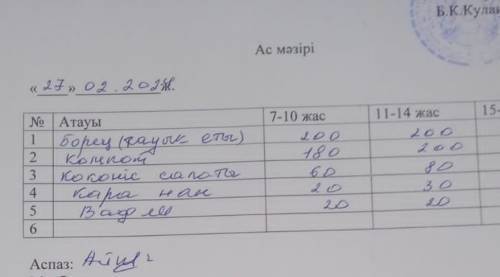 Б.К.Кула
Ас мәзірі
« 27 » 02.202 ж.
№ Атауы 7-10 жас 11-14 жас 15-
1 борщ (тауык еты) 200 200
2 компот 180 200
3 көкөніс салаты 60 80
4 кара нан 20 30
5 Вафли 20 20
6
Аспаз: